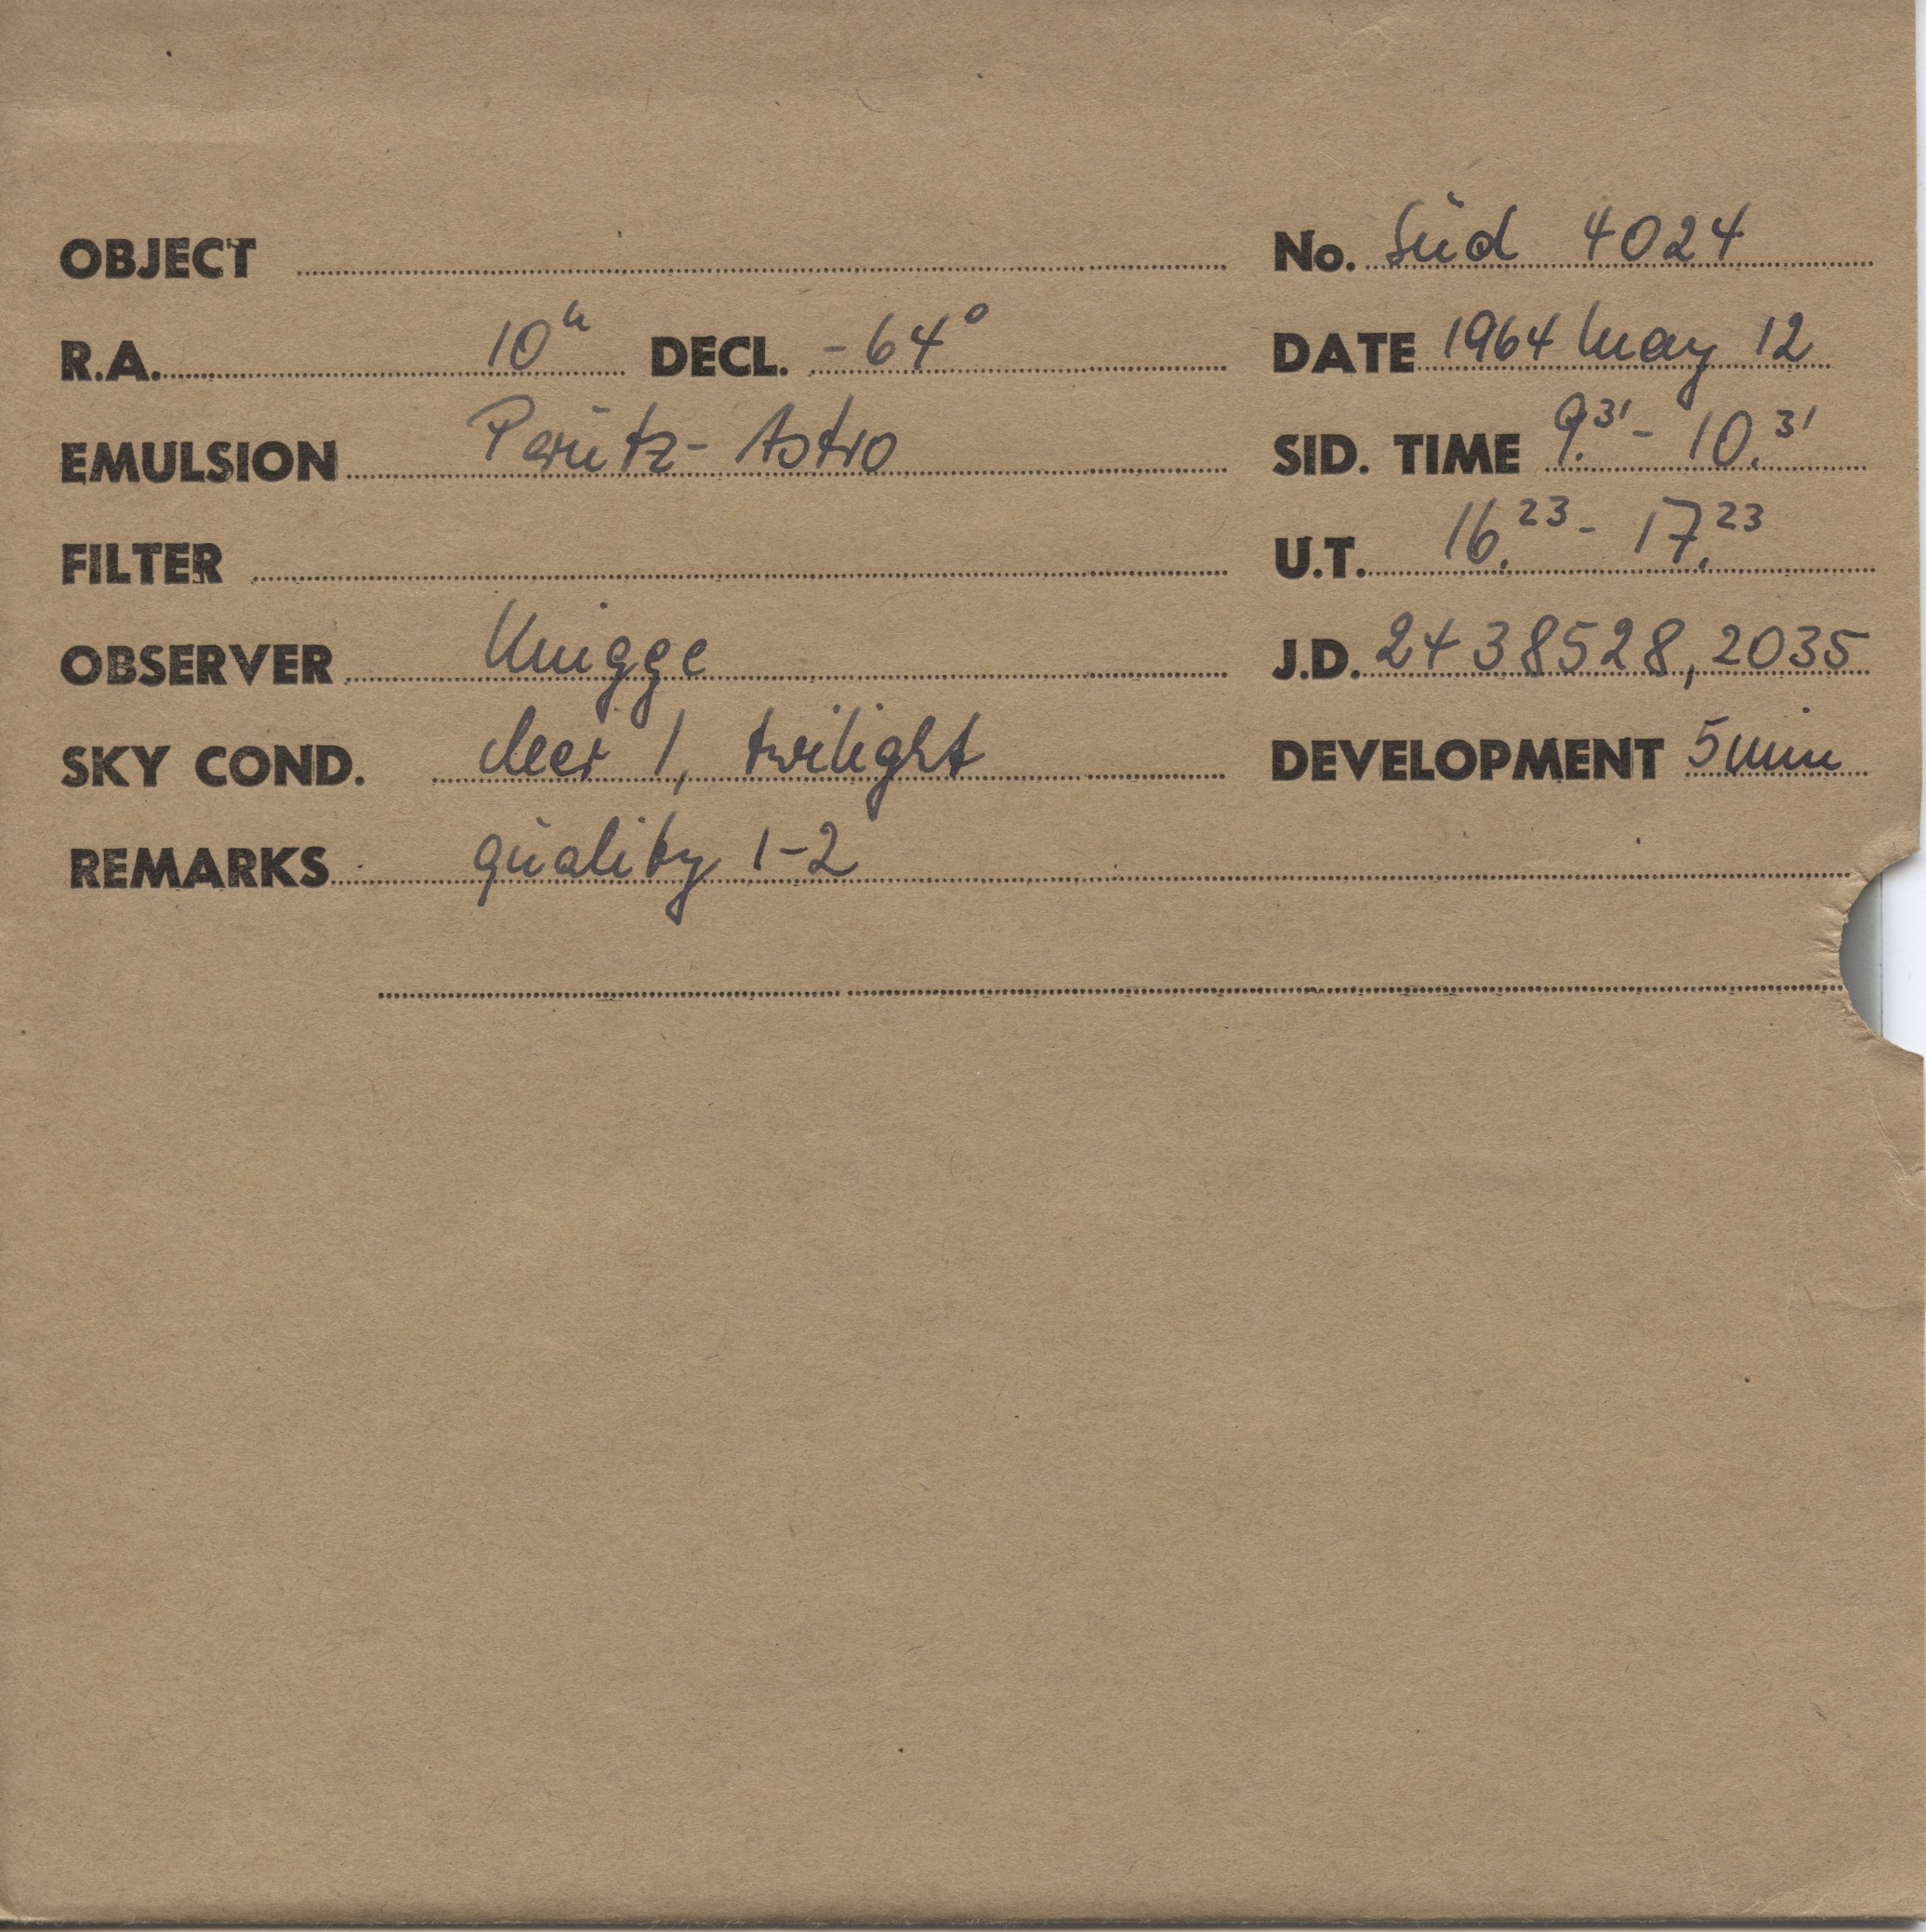 OBJECT No. Süd 4024
R.A. 10h DECL. -64° DATE 1964 May 12
EMULSION Perutz-Astro SID. TIME 9.31 - 10.31
FILTER U.T. 16.23 - 17.23
OBSERVER Knigge J.D. 2438528,2035
SKY COND. cleer 1, twilight DEVELOPMENT 5min
REMARKS quality 1-2